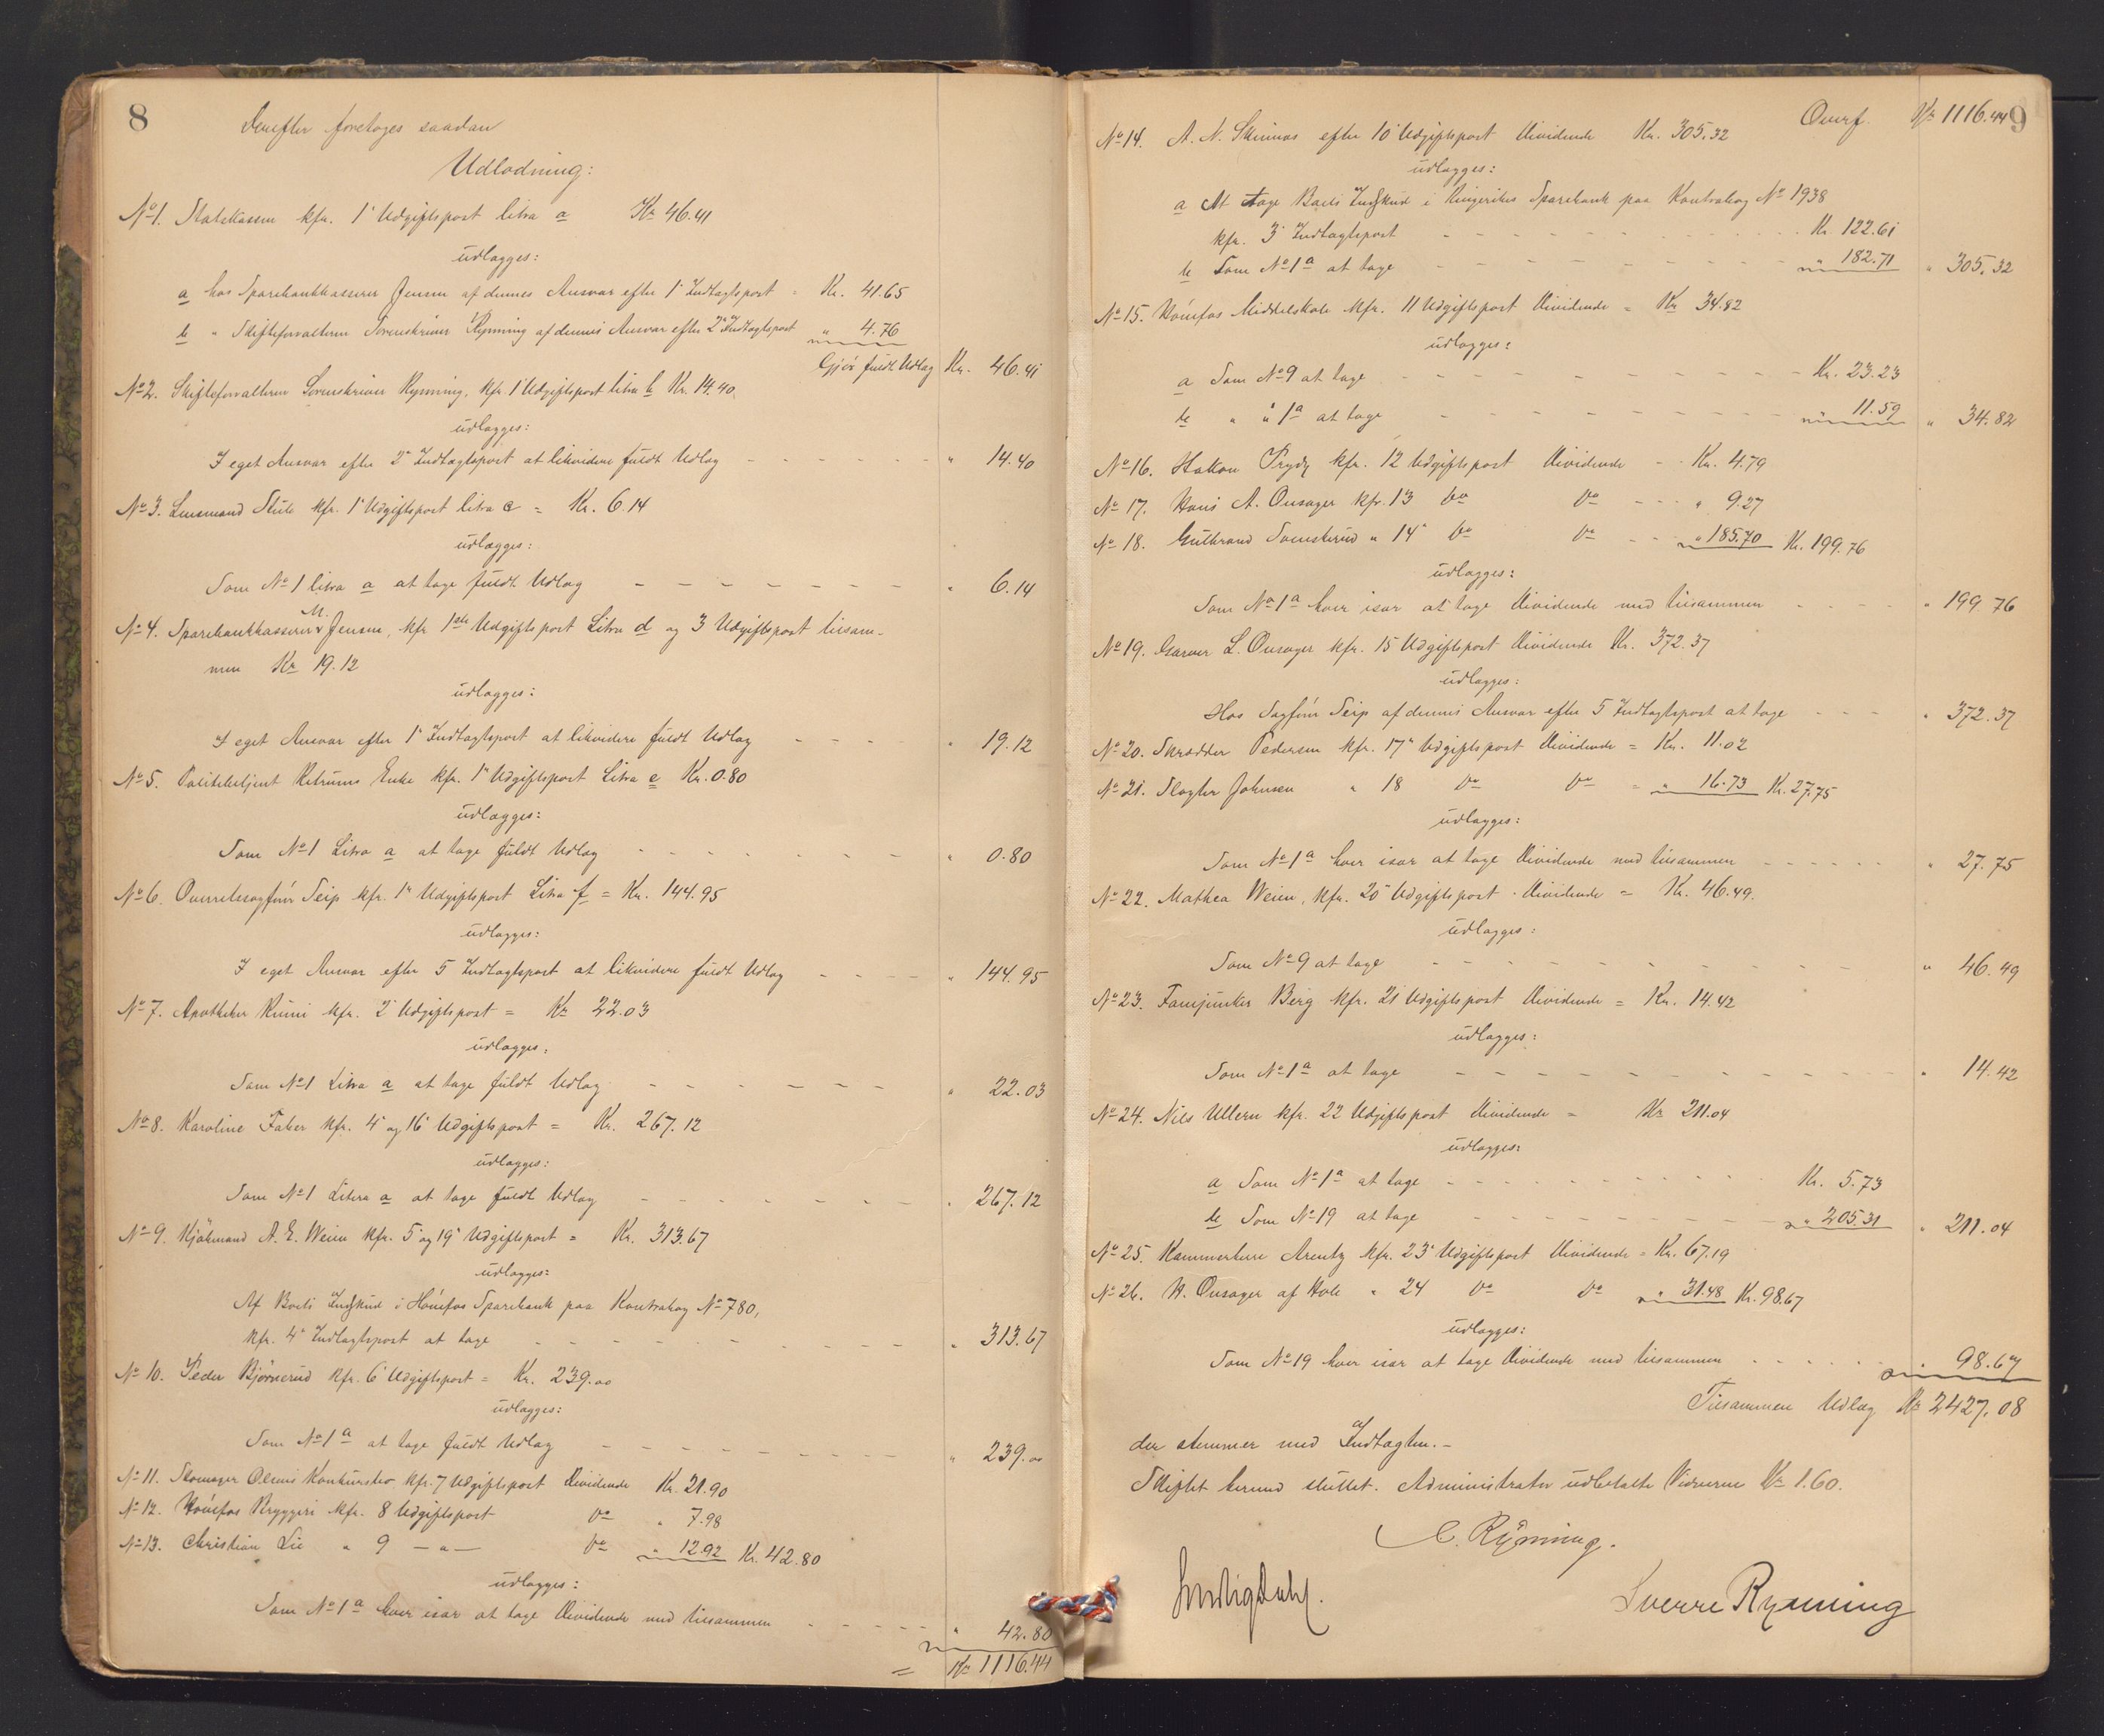 8
Derefter foretages saadan
Udlodning:
No 1. Statskassen kfr. 1' Udgiftspost litra a Kr 46.41
udlægges:
a hos Sparebankkasserer Jensen af dennes Ansvar efter 1' Indtægtspost = Kr. 41.65
b " Skifteforvalteren Sorenskriver Rynning af dennes Ansvar efter 2' Indtægtspost " 4.76
Gjør fuldt Udlæg Kr. 46.41
No 2. Skifteforvalteren Sorenskriver Rynning, kfr. 1' Udgiftspost litra b Kr. 14.40.
udlægges:
I eget Ansvar efter 2' Indtægtspost at likvidere fuldt Udlæg " 14.40
No 3. Lensmand Stub kfr. 1' Udgiftspost litra c = Kr. 6.14
udlægges:
Som No 1 litra a at tage fuldt Udlæg " 6.14
No 4. Sparebankkasserer M. Jensen, kfr 1ste Udgiftspost Litra d og 3 Udgiftspost tilsam-
men Kr 19.12
udlægges:
I eget Ansvar efter 1' Indtægtspost at likvidere fuldt Udlæg " 19.12
No 5. Politibetjent Retrums Enke kfr. 1' Udgiftspost Litra e Kr. 0.80
udlægges:
Som No 1 Litra a at tage fuldt Udlæg " 0.80
No 6. Overretssagfører Seip kfr. 1' Udgiftspost Litra f = Kr. 144.95
udlægges:
I eget Ansvar efter 5 Indtægtspost at likvidere fuldt Udlæg " 144.95
No 7. Apotheker kfr. 2' Udgiftspost = Kr 22.03
udlægges:
Som No 1 Litra a at tage fuldt Udlæg " 22.03
No 8. Karoline Faber kfr. 4' og 16' Udgiftspost = Kr. 267.12
udlægges:
Som No 1 Litera a at tage fuldt Udlæg " 267.12
No 9. Kjöbmand A. E. Weien kfr. 5' og 19' Udgiftspost = Kr. 313.67
udlægges:
Af Boets Indskud i Hönefos Sparebank paa Kontrabog No 780,
kfr. 4' Indtægtspost at tage " 313.67
No 10. Peder Bjørnerud kfr. 6' Udgiftspost = Kr. 239.00
udlægges:
Som No 1 a at tage fuldt Udlæg " 239.00
No 11. Skomager Olsens Konkursbo kfr. 7 Udgiftspost Dividende Kr. 21.90
No 12. Hönefos Bryggeri kfr. 8 Udgiftspost Do " 7.98
No 13. Christian Lie " 9 — " — Do " 12.92 Kr. 42.80
udlægges:
Som No 1 a hver især at tage Dividende med tilsammen " 42.80
= Kr 1116.44
9
Overf. Kr 1116.44
No 14. A. N. Skinnes efter 10' Udgiftspost Dividende Kr. 305.32
udlægges:
a At tage Boets Indskud i Ringerikes Sparebank paa Kontrabog No 1938
kfr. 3' Indtægtspost Kr. 122.61
b Som No 1 a at tage " 182.71 " 305.32
No 15. Hönefos Middelskole kfr. 11 Udgiftspost Dividende = Kr 34.82
udlægges:
a Som No 9 at tage Kr. 23.23
b " " 1 a at tage " 11.59 " 34.82
No 16. Hakon Prydz kfr. 12 Udgiftspost Dividende Kr. 4.79
No 17. Hans A. Onsager kfr. 13 Do Do " 9.27
No 18. Gulbrand " 14' Do Do " 185.70 Kr. 199.76
udlægges:
Som No 1 a hver især at tage Dividende med tilsammen " 199.76
No 19. Garver L. Onsager kfr. 15 Udgiftspost Dividende Kr. 372.37
udlægges:
Hos Sagfører Seip af dennes Ansvar efter 5 Indtægtspost at tage " 372.37
No 20. Skrædder Pedersen kfr. 17' Udgiftspost Dividende = Kr. 11.02
No 21. Slagter Johnsen " 18 Do Do = " 16.73 Kr. 27.75
udlægges:
Som No 1 a hver især at tage Dividende med tilsammen " 27.75
No 22. Mathea Weien, kfr. 20' Udgiftspost Dividende = Kr. 46.49.
udlægges:
Som No 9 at tage " 46.49
No 23. Fanejunker Berg kfr. 21' Udgiftspost Dividende = Kr. 14.42
udlægges:
Som No 1 a at tage " 14.42
No 24. Nils Ullern kfr. 22 Udgiftspost Dividende = Kr 211.04
udlægges:
a Som No 1 a at tage Kr. 5.73
b Som No 19 at tage " 205.31 " 211.04
No 25. Kammerherre Arentz kfr. 23' Udgiftspost Dividende = Kr. 67.19
No 26. H. Onsager af Hole " 24 Do Do " 31.48 Kr. 98.67
udlægges:
Som No 19 hver især at tage Dividende med tilsammen " 98.67
Tilsammen Udlæg Kr 2427.08
der stemmer med Indtægten. -
Skiftet hermed sluttet. Administrator udbetalte Vidnerne Kr 1.60.
C. Rynning.
Sverre Rynning